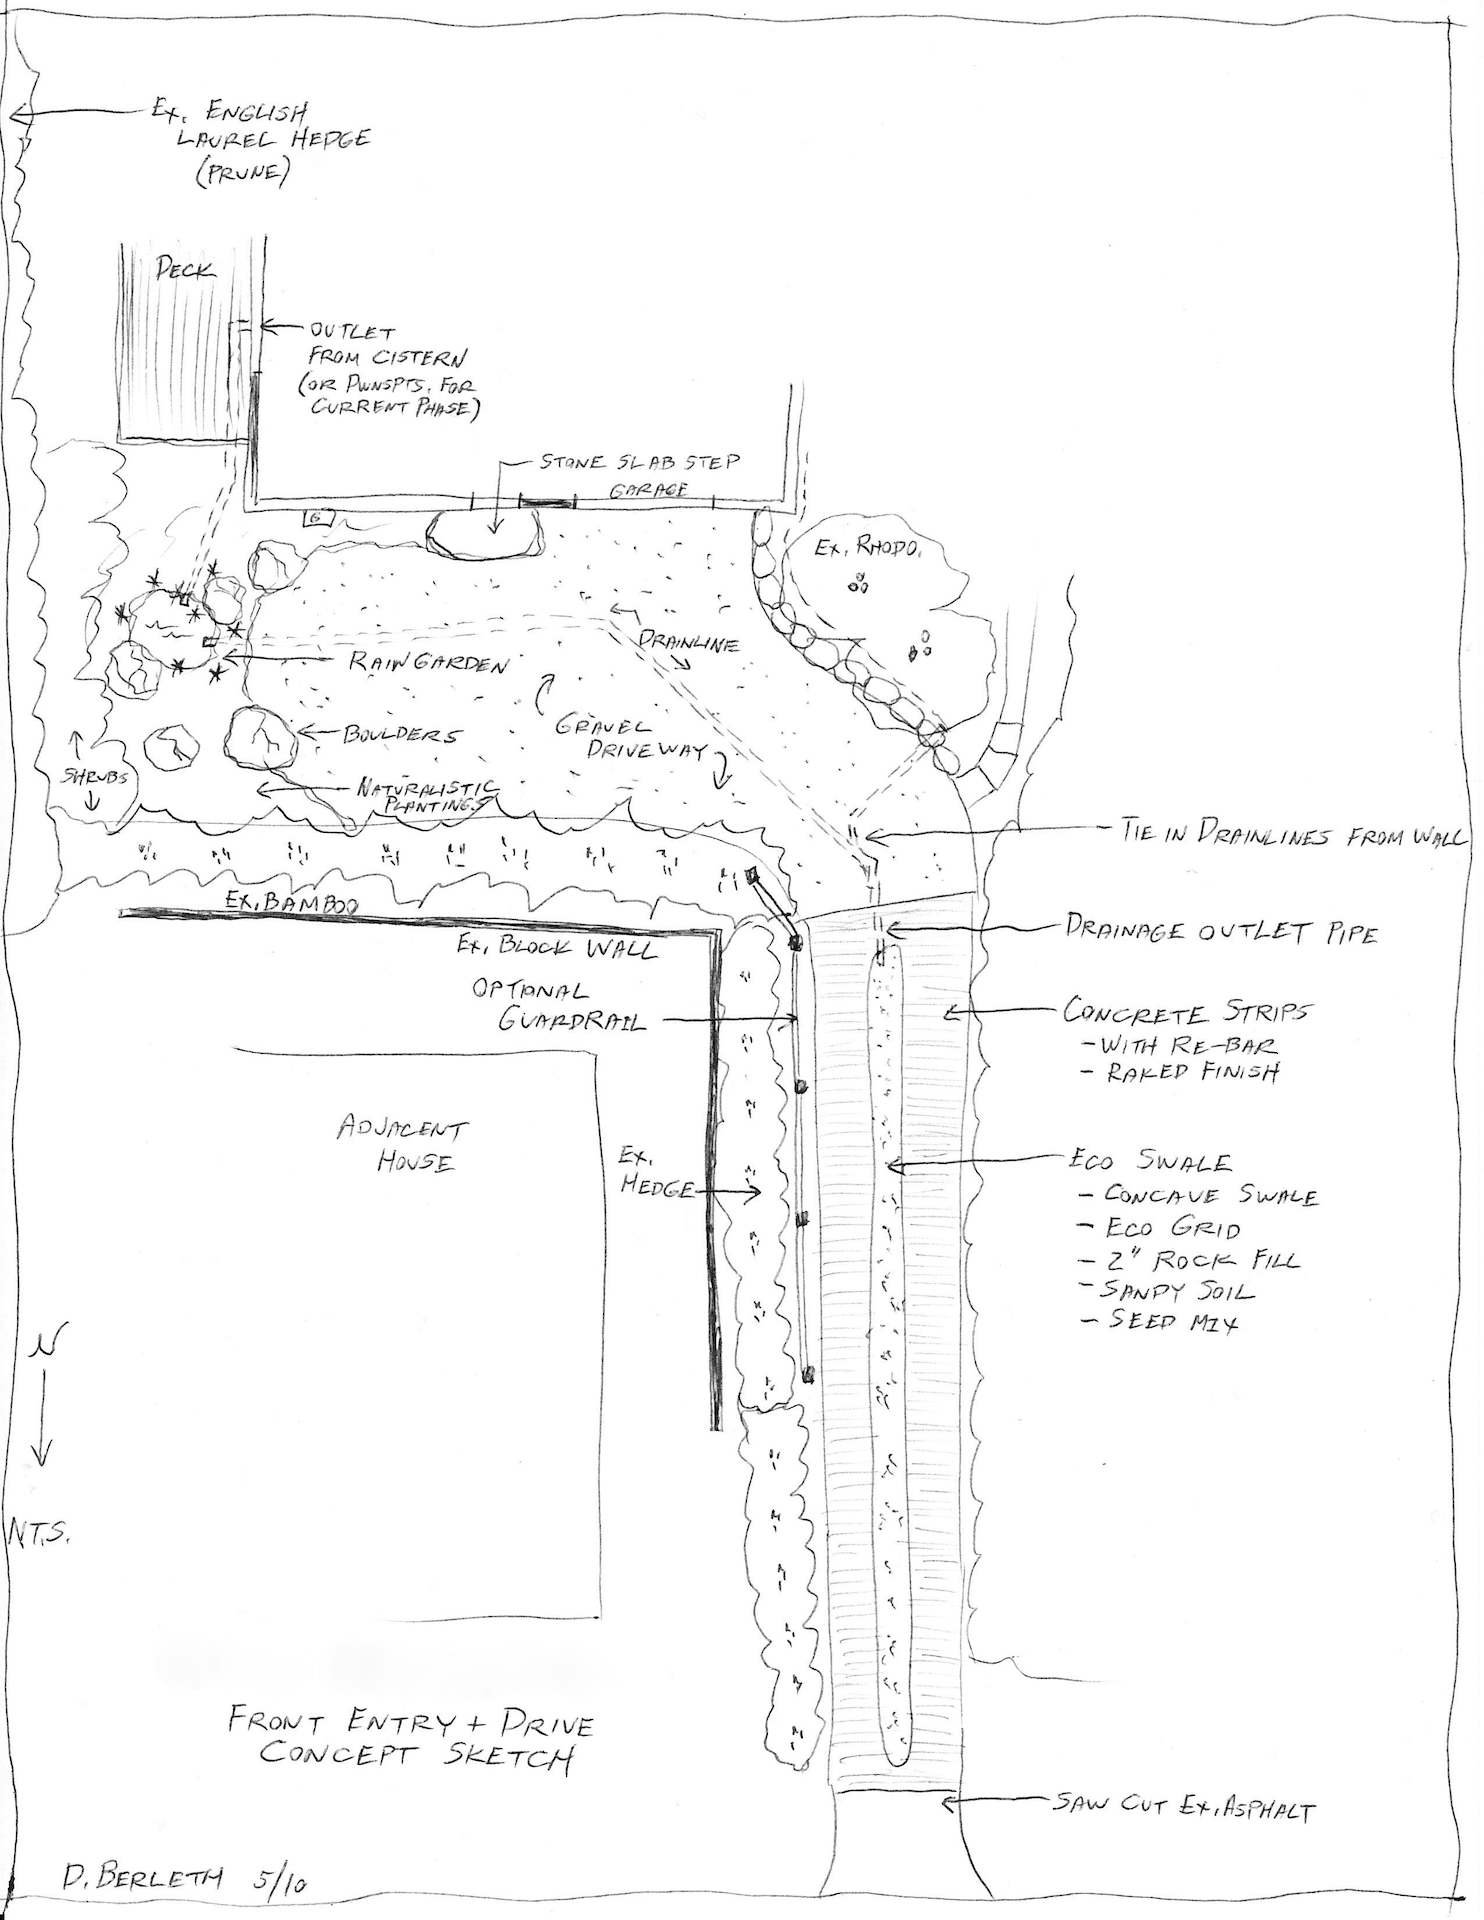 Ex. ENGLISH
LAUREL HEDGE
(PRUNE)
DECK
OUTLET
FROM CISTERN
(OR DWNSPTS. FOR
CURRENT PHASE)
STONE SLAB STEP
GARAGE
G
Ex. RHODO.
DRAINLINE
RAIN GARDEN
BOULDERS
GRAVEL
DRIVEWAY
SHRUBS
NATURALISTIC
PLANTINGS
TIE IN DRAINLINES FROM WALL
EX. BAMBOO
Ex. BLOCK WALL
DRAINAGE OUTLET PIPE
OPTIONAL
GUARDRAIL
CONCRETE STRIPS
- WITH RE-BAR
- RAKED FINISH
ADJACENT
HOUSE
Ex.
HEDGE
ECO SWALE
- CONCAVE SWALE
- ECO GRID
- 2" ROCK FILL
- SANDY SOIL
- SEED MIX
N
N.T.S.
FRONT ENTRY + DRIVE
CONCEPT SKETCH
SAW CUT Ex. ASPHALT
D. BERLETH 5/10